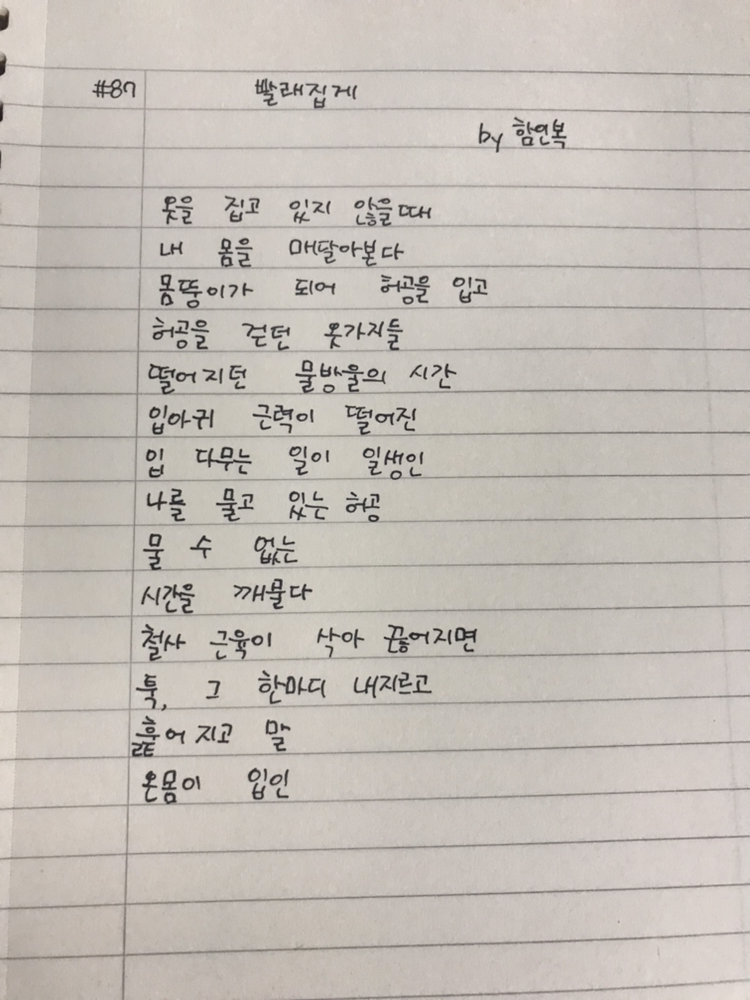 #87 빨래집게
by 함민복
옷을 집고 있지 않을때
내 몸을 매달아본다
몸뚱이가 되어 허공을 입고
허공을 걷던 옷가지들
떨어지던 물방울의 시간
입아귀 근력이 떨어진
입 다무는 일이 일생인
나를 물고 있는 허공
물 수 없는
시간을 깨물다
철사 근육이 삭아 끊어지면
툭, 그 한마디 내지르고
흩어지고 말
온몸이 입인